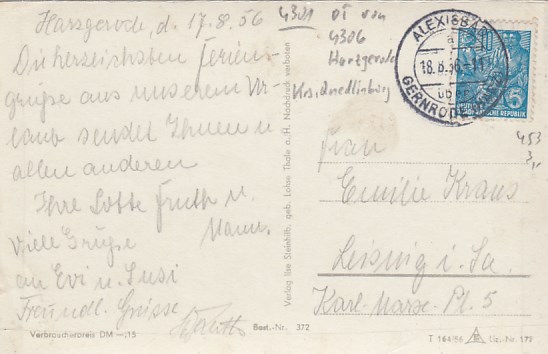 Harzgerode, d. 17.8.56
Die herzlichsten Ferien-
grüße aus unserem Ur-
laub sendet Ihnen u.
allen anderen
Ihre Lotte Fruth u.
Mann.
Viele Grüße
an Evi u. Susi
Freundl. Grüsse
Verbraucherpreis DM —,15
Best.-Nr. 372
4301 OT von
4306
Harzgerode
Krs. Quedlinburg
Verlag Ilse Steinhilb, geb. Lohse Thale a. H. Nachdruck verboten
ALEXISBAD
18.8.56-11
GERNRODE
10
5
REPUBLIK
453
3,-
Frau
Emilie Kraus
Leisnig i. Sa.
Karl-Marx-Pl. 5
T 164/56 Liz.-Nr. 172